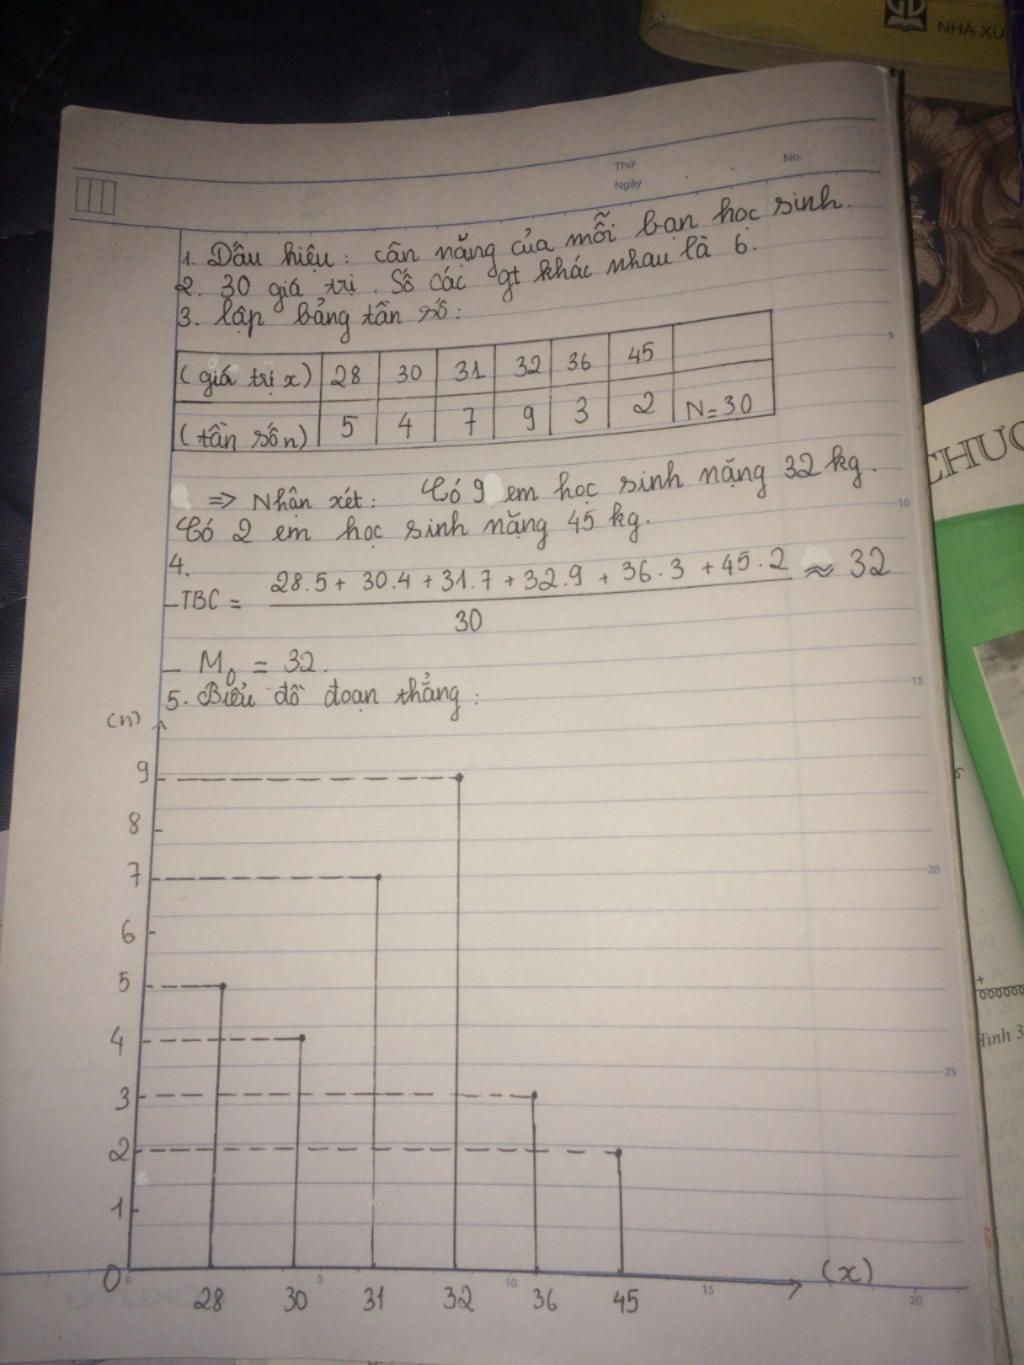 NHÀ XU
Thứ
Ngày
No.
1. Dấu hiệu: cân nặng của mỗi bạn học sinh.
2. 30 giá trị. Số các gt khác nhau là 6.
3. lập bảng tần số:
(giá trị x) 28 30 31 32 36 45
(tần số n) 5 4 7 9 3 2 N=30
=> Nhận xét: Có 9 em học sinh nặng 32 kg.
Có 2 em học sinh nặng 45 kg.
4.
-TBC = 28.5 + 30.4 + 31.7 + 32.9 + 36.3 + 45.2 ≈ 32
30
- M₀ = 32.
5. Biểu đồ đoạn thẳng:
(n)
9
8
7
6
5
4
3
2
1
0
28 30 31 32 36 45 (x)
5
10
15
20
25
0 5 10 15 20
CHƯƠ
Hình 3